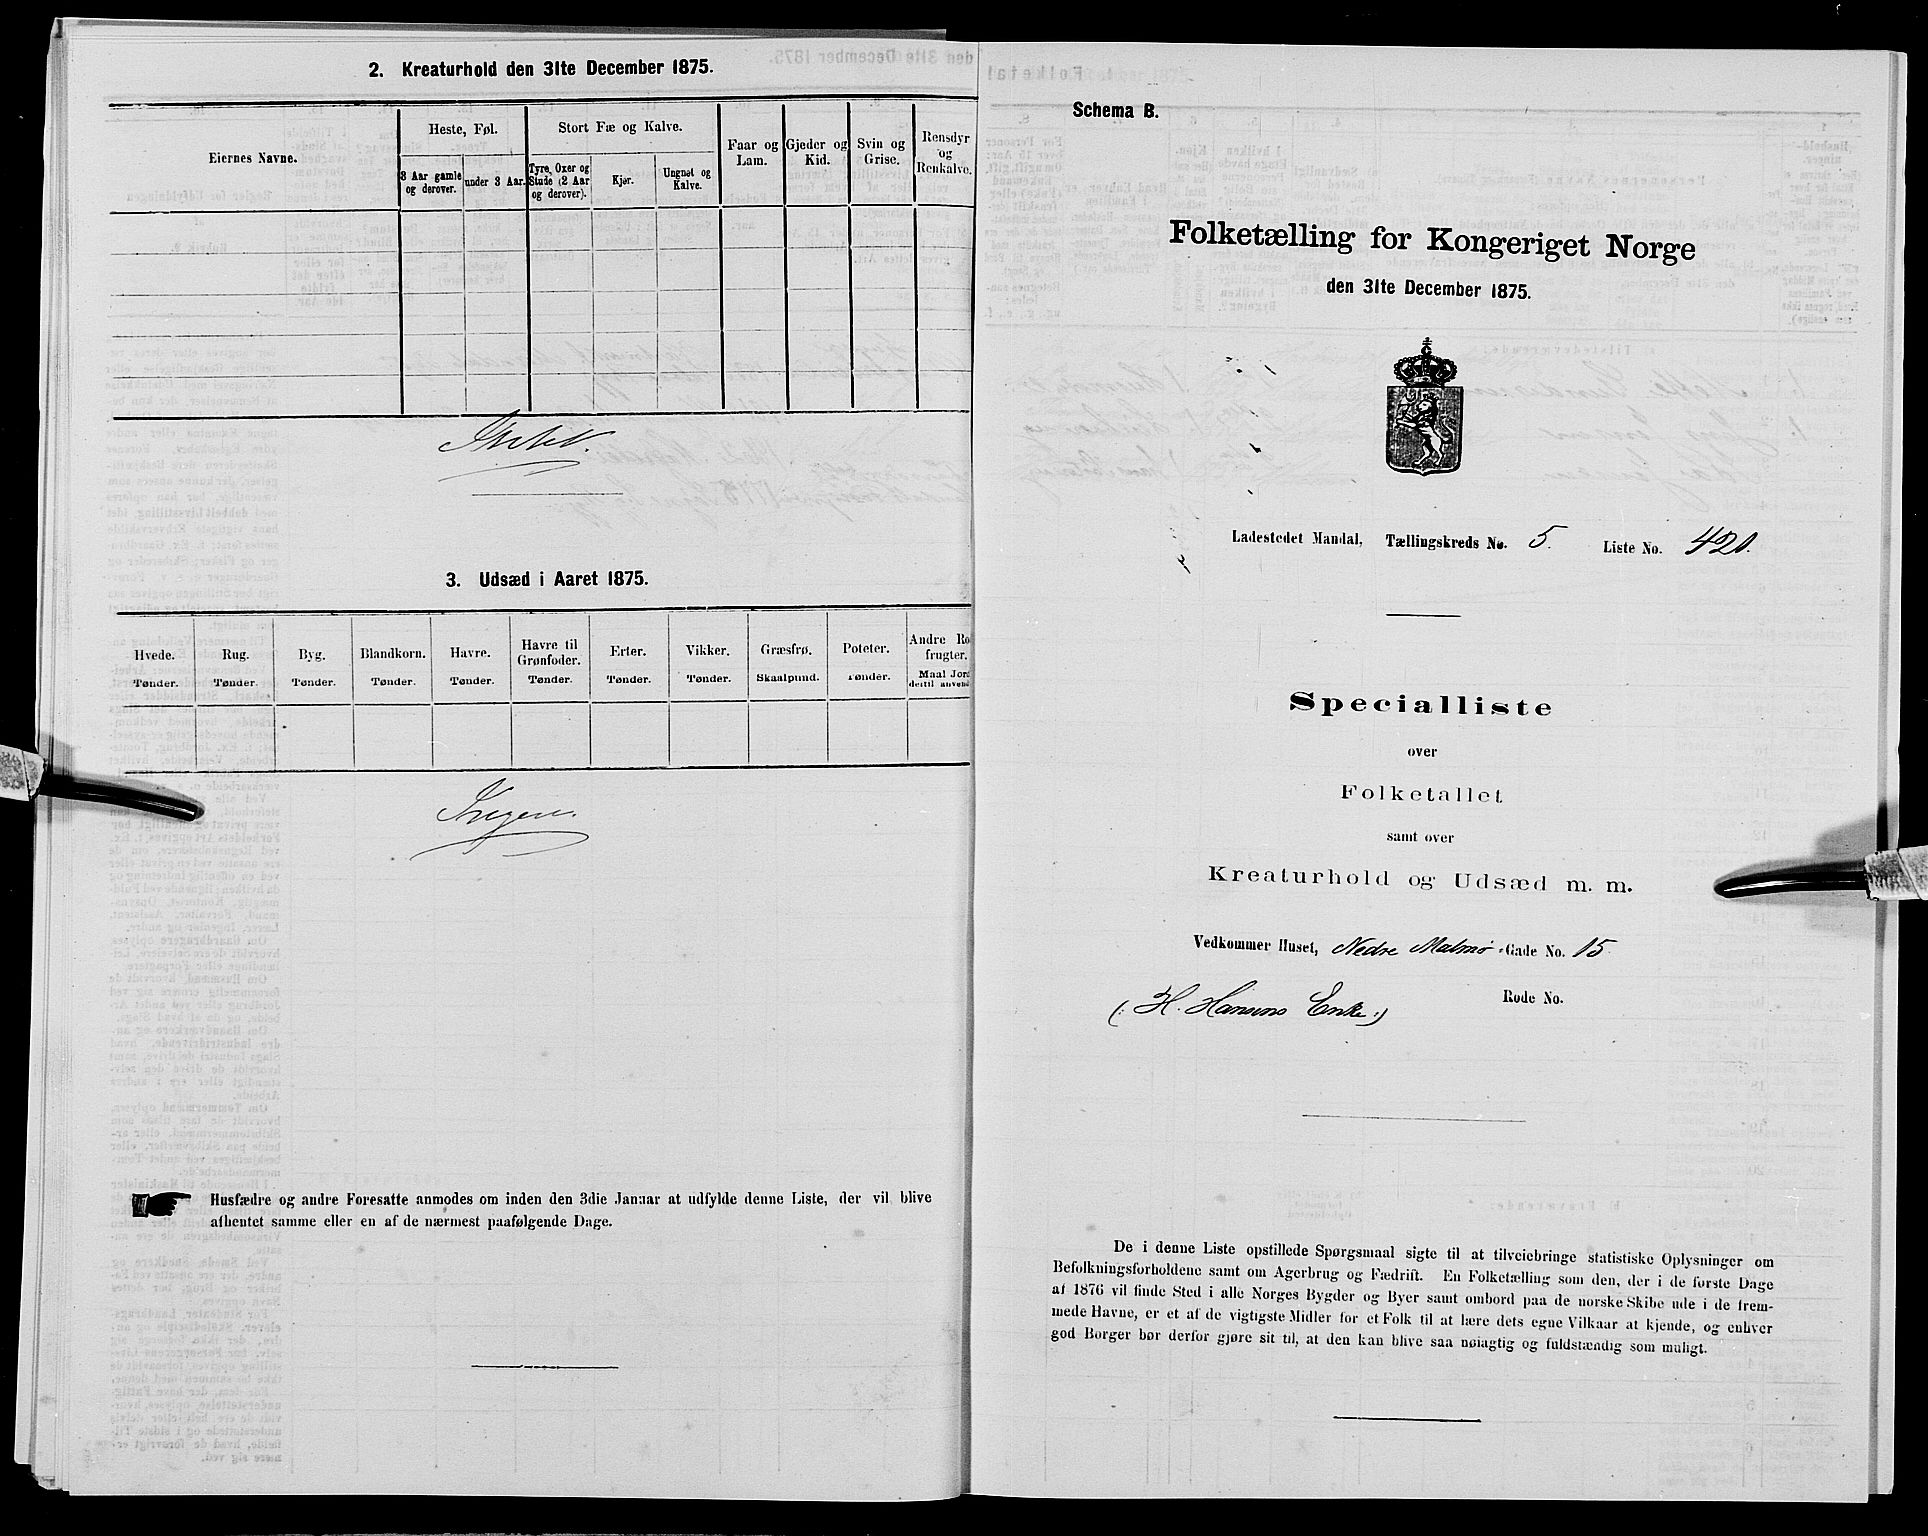 2. Kreaturhold den 31te December 1875.
Eiernes Navne.
Heste, Føl.
Stort Fæ og Kalve.
Faar og Lam.
Gjeder og Kid.
Svin og Grise.
Rensdyr og Renkalve.
3 Aar gamle og derover.
under 3 Aar.
Tyre, Oxer og Stude (2 Aar og derover).
Kjør.
Ungnøt og Kalve.
3. Udsæd i Aaret 1875.
Hvede. Tønder.
Rug. Tønder.
Byg. Tønder.
Blandkorn. Tønder.
Havre. Tønder.
Havre til Grønfoder. Tønder.
Erter. Tønder.
Vikker. Tønder.
Græsfrø. Skaalpund.
Poteter. Tønder.
Andre Ro frugter. Maal Jord dertil anvend
Ingen.
Husfædre og andre Foresatte anmodes om inden den 3die Januar at udfylde denne Liste, der vil blive
afhentet samme eller en af de nærmest paafølgende Dage.
Schema B.
Folketælling for Kongeriget Norge
den 31te December 1875.
Ladestedet Mandal, Tællingskreds No. 5. Liste No. 420.
Specialliste
over
Folketallet
samt over
Kreaturhold og Udsæd m. m.
Vedkommer Huset, Nedre Malmø-Gade No. 15
(: H. Hansens Enke :) Rode No.
De i denne Liste opstillede Spørgsmaal sigte til at tilveiebringe statistiske Oplysninger om
Befolkningsforholdene samt om Agerbrug og Fædrift. En Folketælling som den, der i de første Dage
af 1876 vil finde Sted i alle Norges Bygder og Byer samt ombord paa de norske Skibe ude i de frem-
mede Havne, er et af de vigtigste Midler for et Folk til at lære dets egne Vilkaar at kjende, og enhver
god Borger bør derfor gjøre sit til, at den kan blive saa nøiagtig og fuldstændig som muligt.